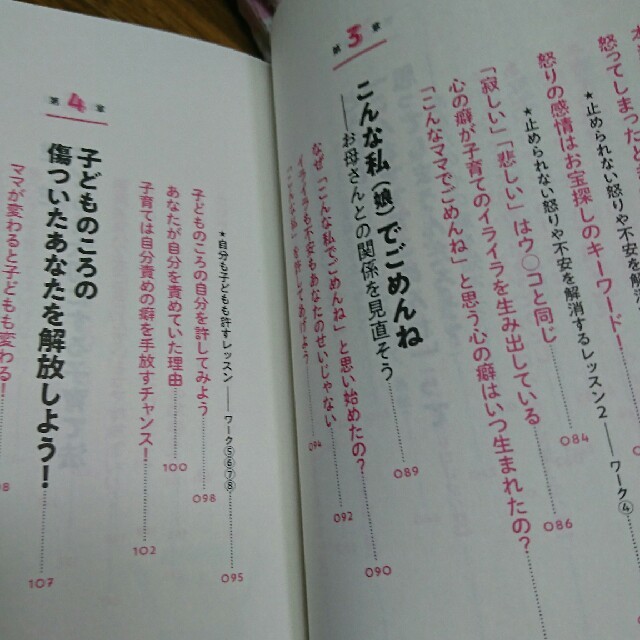 怒ってしまった
★止められない怒りや不安を
怒りの感情はお宝探しのキーワード！
★止められない怒りや不安を解消するレッスン2 ワーク④
「寂しい」「悲しい」はウ○コと同じ 084
心の癖が子育てのイライラを生み出している 086
「こんなママでごめんね」と思う心の癖はいつ生まれたの？
第3章
こんな私（娘）でごめんね
――お母さんとの関係を見直そう 089
なぜ「こんな私でごめんね」と思い始めたの？ 090
イライラも不安もあなたのせいじゃない 092
「こんな私」を許してあげよう 094
★自分も子どもも許すレッスン――ワーク⑤⑥⑦⑧ 095
子どものころの自分を許してみよう 098
あなたが自分を責めていた理由 100
子育ては自分責めの癖を手放すチャンス！ 102
第4章
子どものころの
傷ついたあなたを解放しよう！ 107
ママが変わると子どもも変わる！